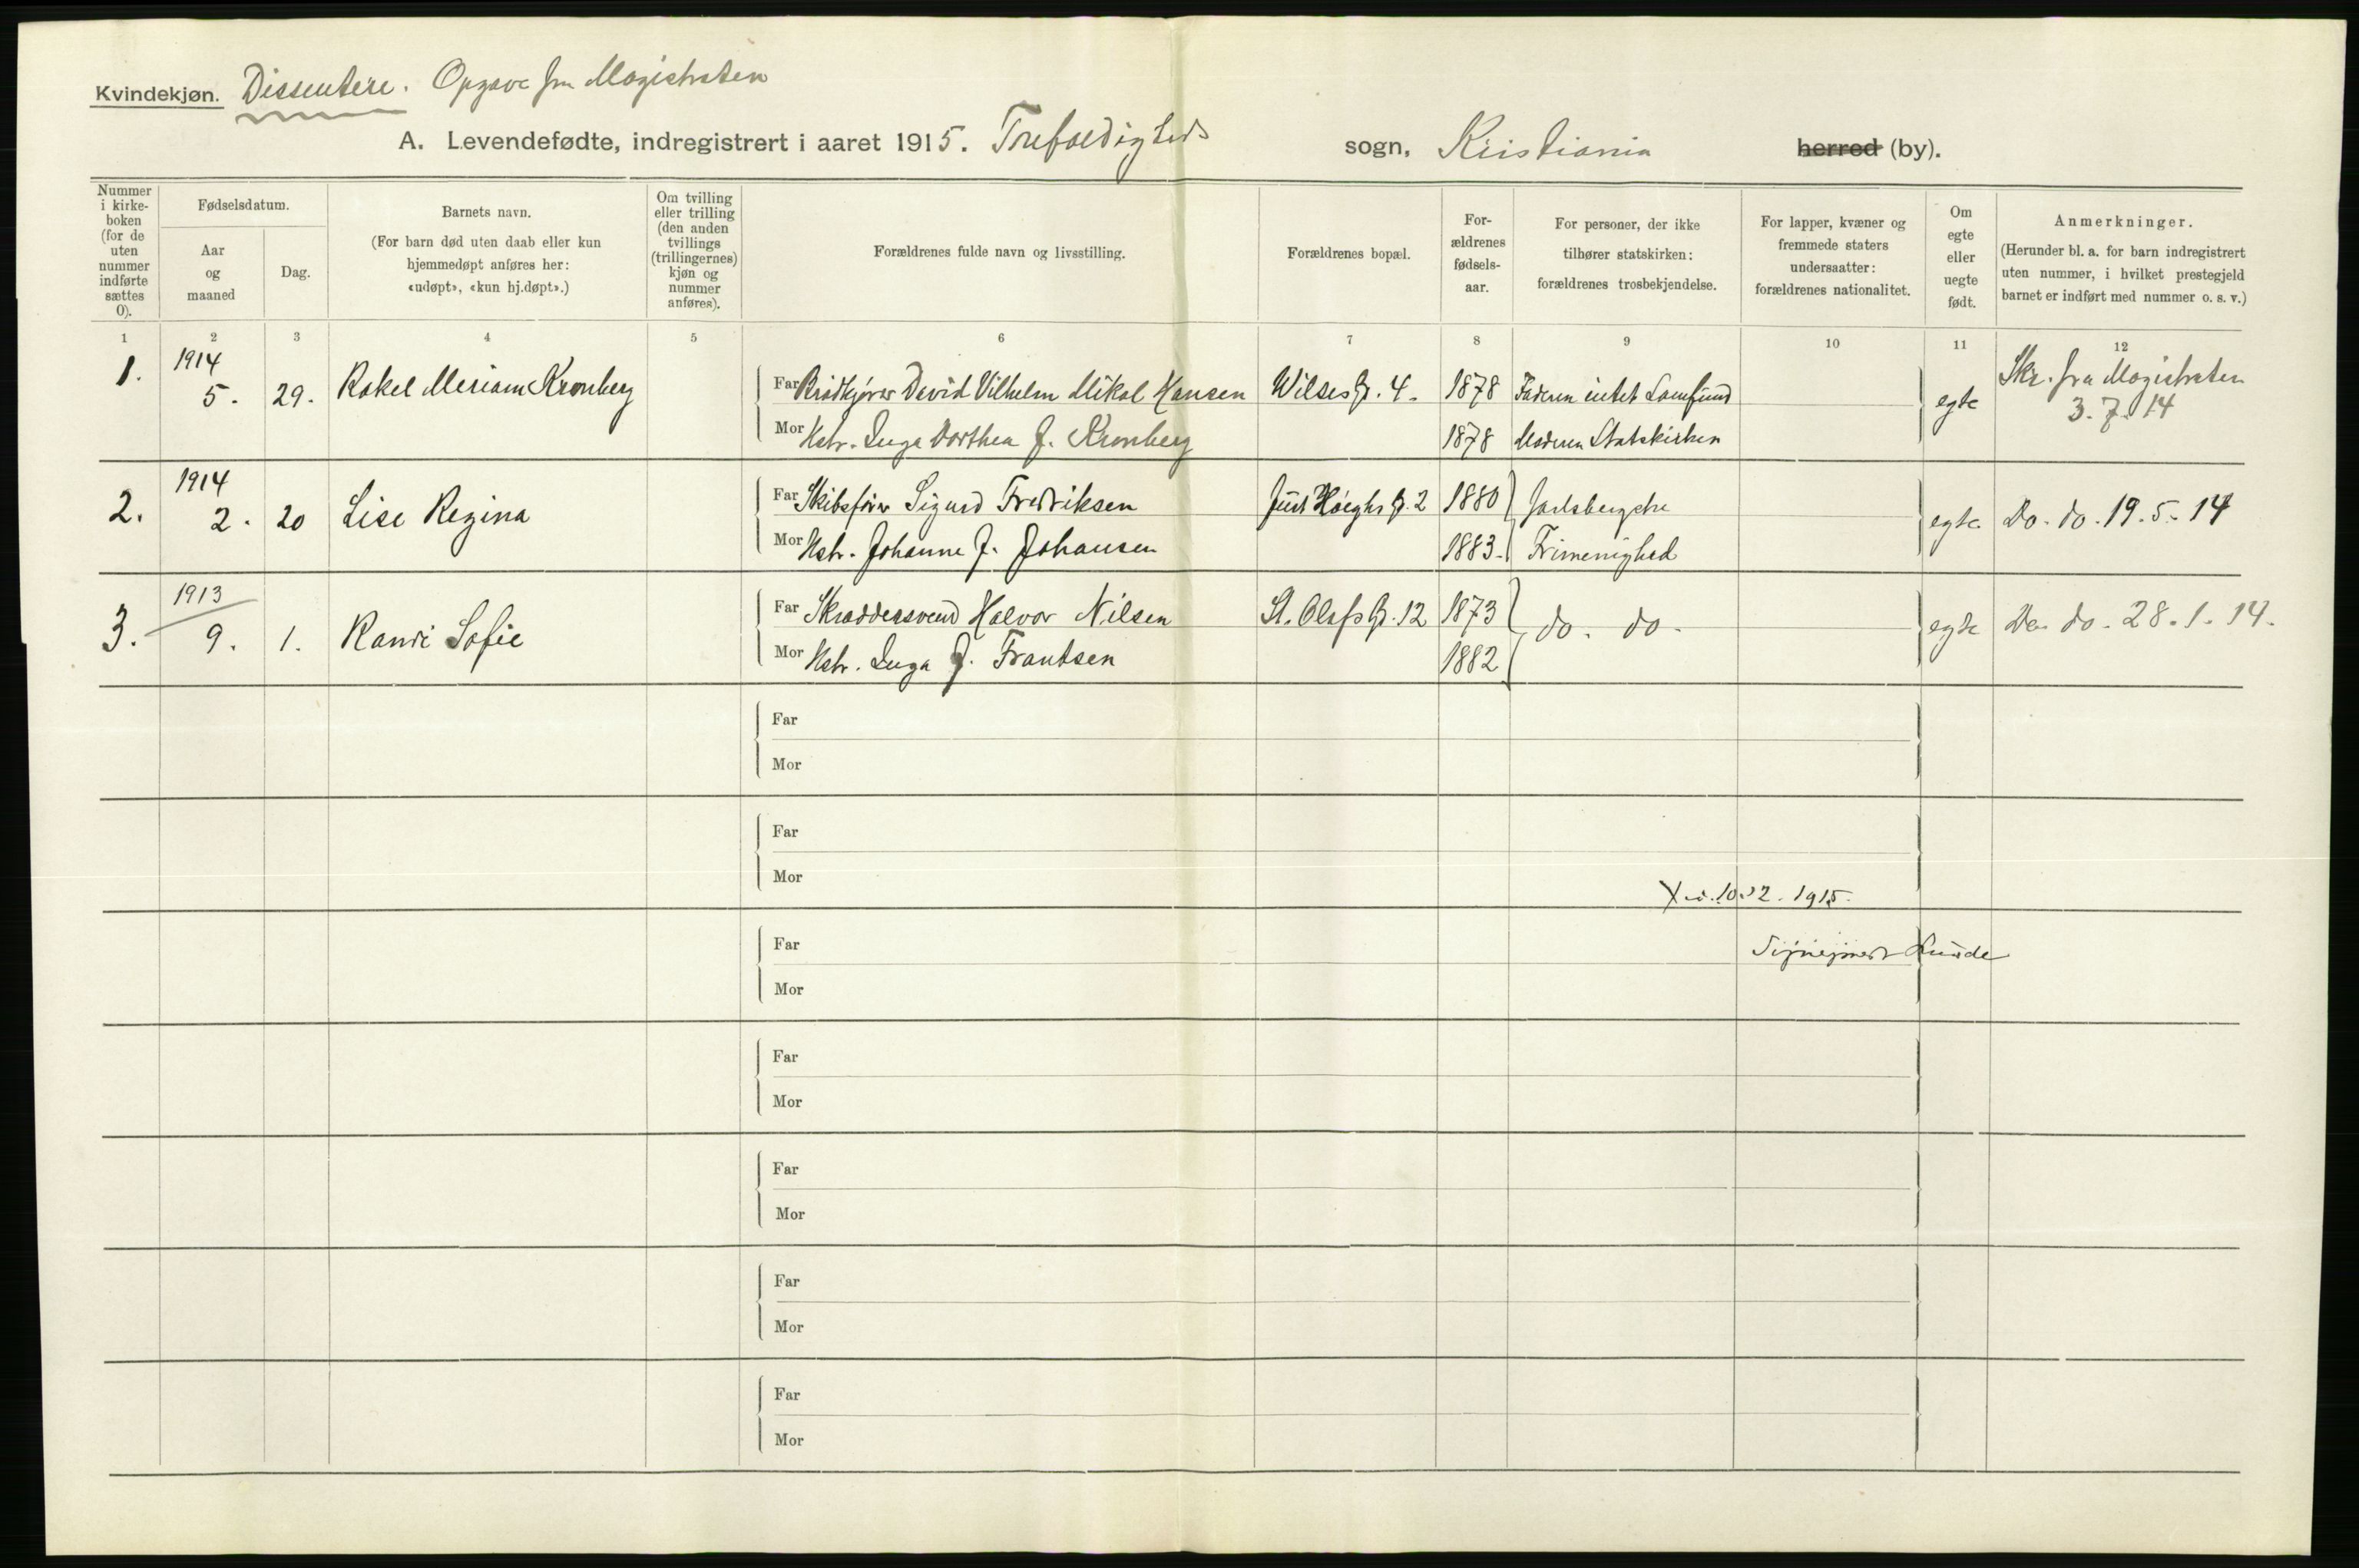 Kvindekjøn. Dissentere. Opgave fra Magistraten
A. Levendefødte, indregistrert i aaret 1915. Trefoldigheds sogn, Kristiania herred (by).
Nummer i kirkeboken (for de uten nummer indførte sættes 0).
Fødselsdatum.
Aar og maaned
Dag.
Barnets navn.
(For barn død uten daab eller kun hjemmedøpt anføres her: «udøpt», «kun hj.døpt».)
Om tvilling eller trilling (den anden tvillings (trillingernes) kjøn og nummer anføres).
Forældrenes fulde navn og livsstilling.
Forældrenes bopæl.
For-
ældrenes
fødsels-
aar.
For personer, der ikke
tilhører statskirken:
forældrenes trosbekjendelse.
For lapper, kvæner og
fremmede staters
undersaatter:
forældrenes nationalitet.
Om
egte
eller
uegte
født.
Anmerkninger.
(Herunder bl. a. for barn indregistrert
uten nummer, i hvilket prestegjeld
barnet er indført med nummer o. s. v.)
1 2 3 4 5 6 7 8 9 10 11 12
1. 1914 5. 29. Rakel Meriam Kronberg
Far Brødkjører David Vilhelm Mikal Hansen Wilsesg. 4. 1878 Faderen intet Samfund egte Skr. fra Magistraten
Mor Hstr. Inga Dorthea f. Kronberg 1878 Moderen Statskirken 3.7.14
2. 1914 2. 20 Lise Regina
Far Skibsfører Sigurd Fredriksen Just Høeghs g. 2 1880 Jarlsbergske egte Do. do. 19.5.14
Mor Hstr. Johanne f. Johansen 1883. Frimenighed
3. 1913 9. 1. Randi Sofie
Far Skræddersvend Halvor Nilsen St. Olafs g. 12 1873 do. do. egte Do. do. 28.1.14.
Mor Hstr. Inga f. Frantsen 1882
Far
Mor
Far
Mor
1915.
Far
Mor
Far
Mor
Far
Mor
Far
Mor
Far
Mor